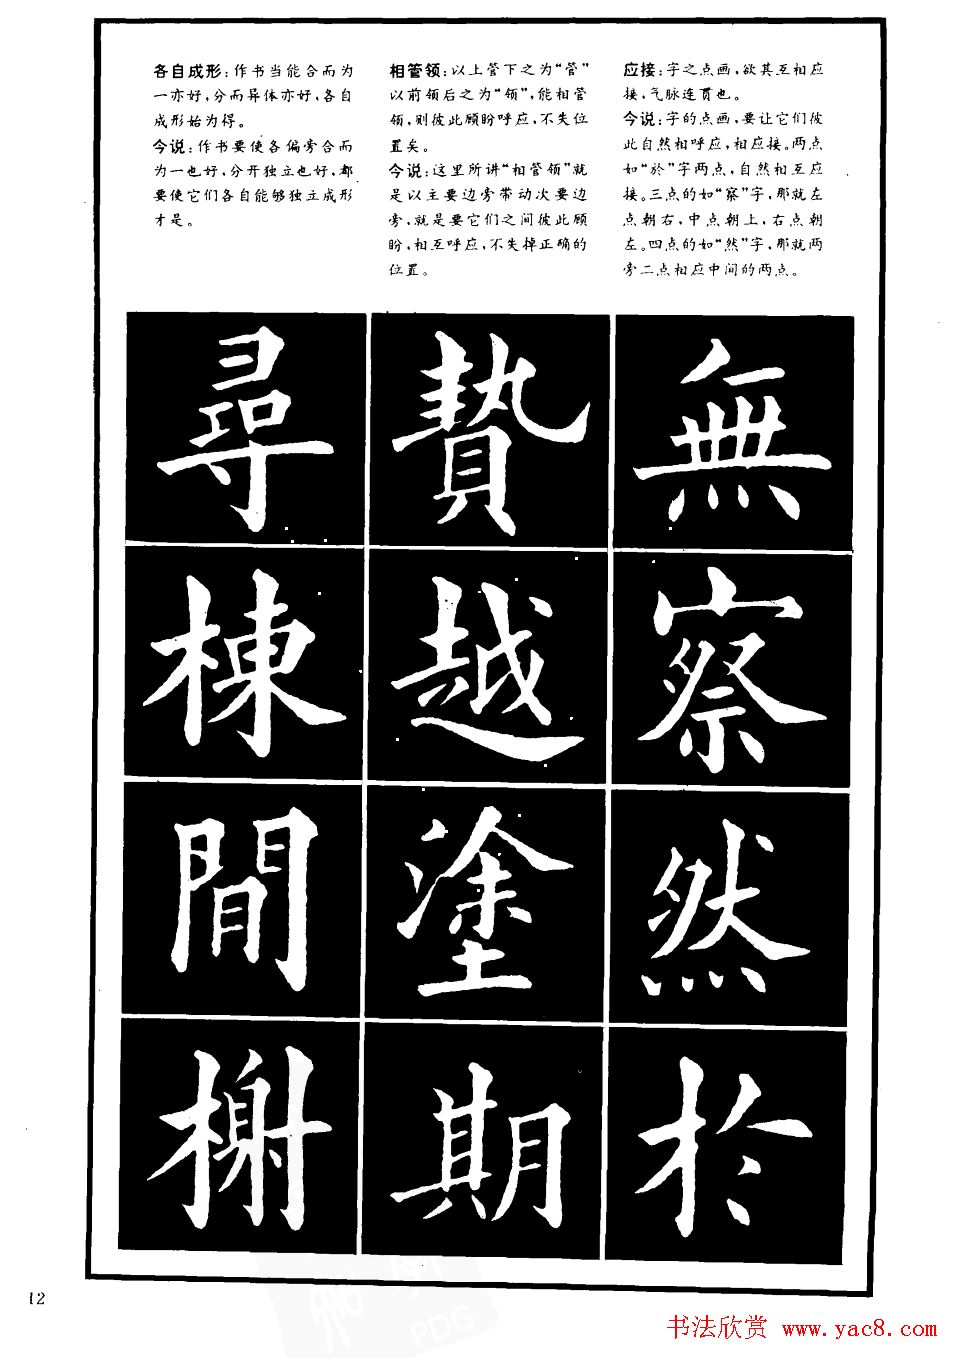 各自成形:作书当能合而为
一亦好,分而异体亦好,各自
成形始为得。
今说:作书要使各偏旁合而
为一也好,分开独立也好,都
要使它们各自能够独立成形
才是。
相管领:以上管下之为“管”
以前领后之为“领”,能相管
领,则彼此顾盼呼应,不失位
置矣。
今说:这里所讲“相管领”就
是以主要边旁带动次要边
旁,就是要它们之间彼此顾
盼,相互呼应,不失掉正确的
位置。
应接:字之点画,欲其互相应
接,气脉连贯也。
今说:字的点画,要让它们彼
此自然相呼应,相应接。两点
如“於”字两点,自然相互应
接。三点的如“察”字,那就左
点朝右,中点朝上,右点朝
左。四点的如“然”字,那就两
旁二点相应中间的两点。
尋 贄 無
棟 越 察
間 塗 然
榭 期 於
12
PDG
书法欣赏 www.yac8.com